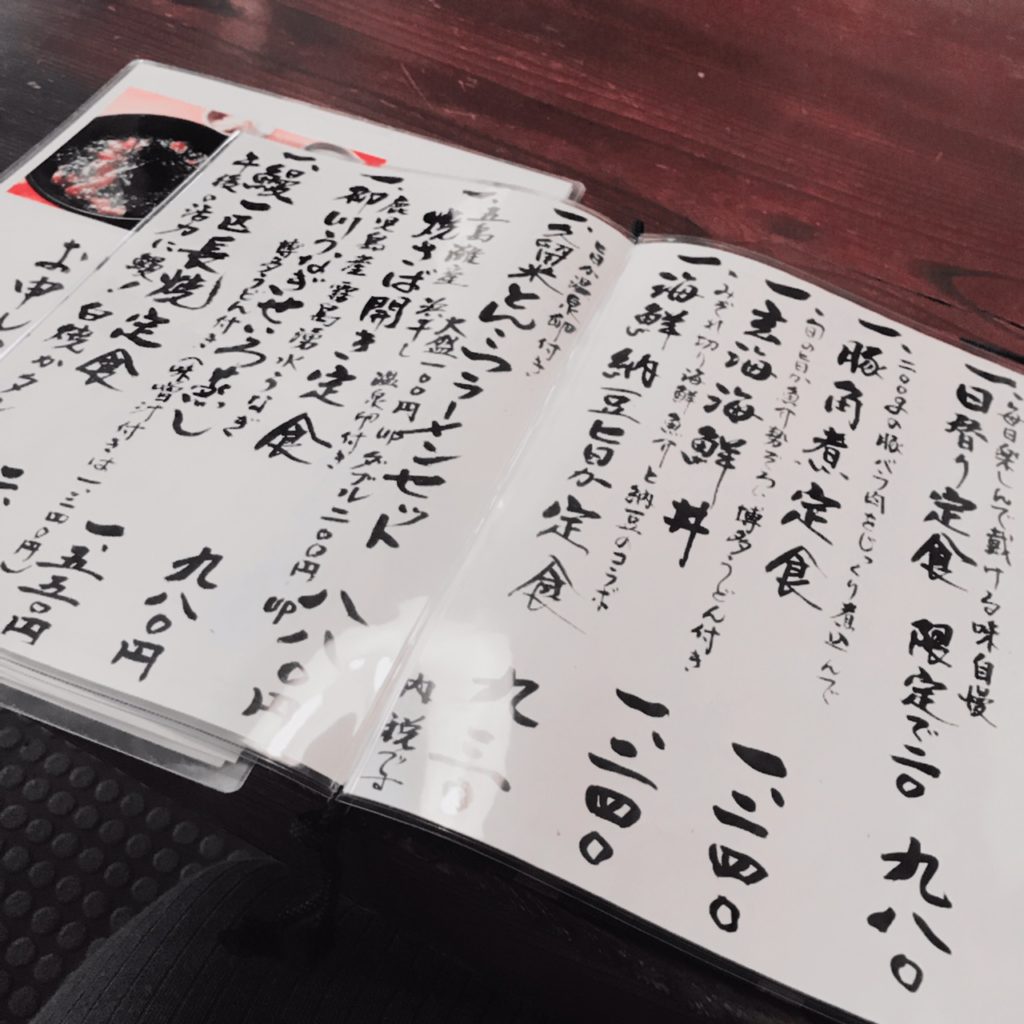 一、日替り定食 限定で二〇 九八〇
毎日楽しんで戴ける味自慢
一、豚角煮定食
二〇〇gの豚バラ肉をじっくり煮込んで
一、玄海海鮮丼 一、二四〇
旬の旨か魚介勢ぞろい 博多うどん付き
一、海鮮納豆旨か定食 一、二四〇
みぞれ切り海鮮魚介と納豆のコラボ
一、久留米とんこつラーメンセット 九三〇
旨か温泉卵付き
内税です
一、五島灘産
焼さば開き定食 八八〇円
大盛一〇〇円 卵ダブル二〇〇円
温泉卵付き
一、柳川うなぎせいろ蒸し 定食 九八〇円
鹿児島産霧島湧水うなぎ
博多うどん付き
一、鰻一匹長焼定食 一、五五〇円
午後の活力に鰻!
白焼か
お申し